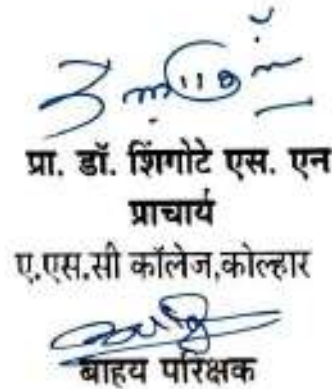 प्रा. डॉ. शिंगोटे एस. एन
प्राचार्य
ए.एस.सी कॉलेज,कोल्हार
बाहय परिक्षक